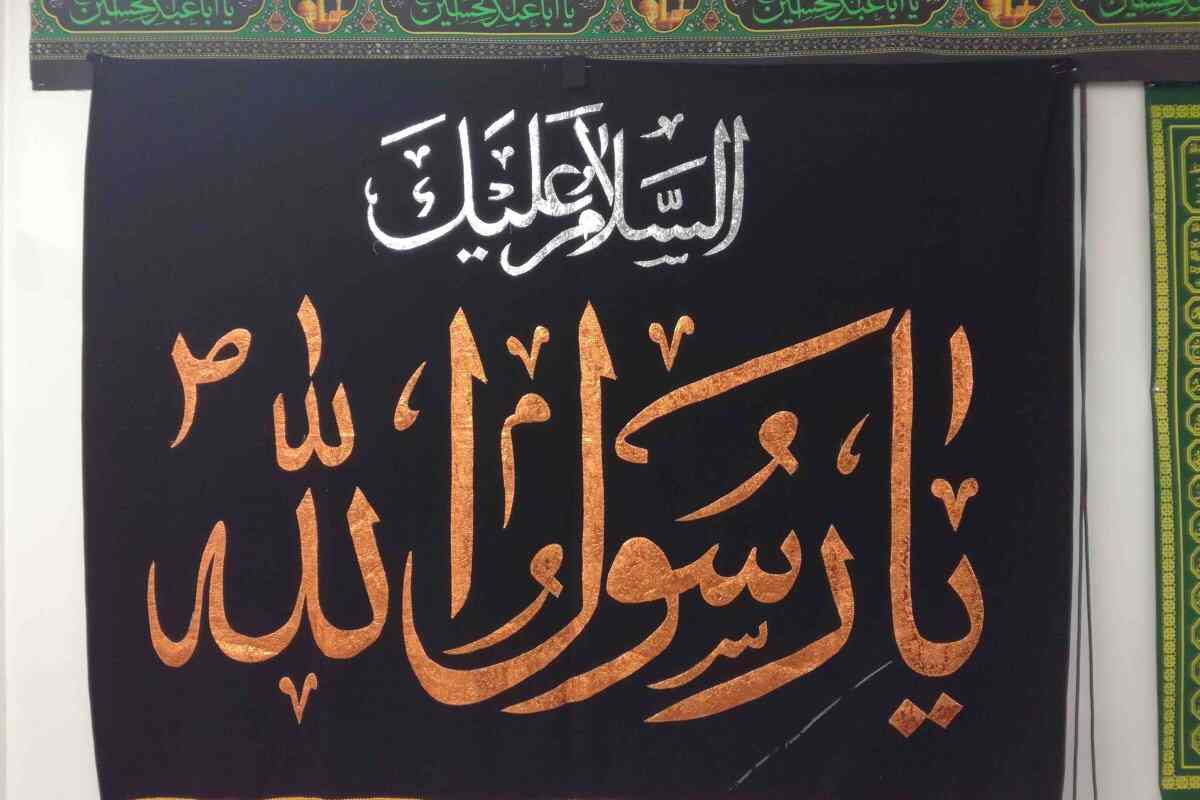 يا أبا عبد الحسين يا أبا عبد الحسين يا أبا عبد الحسين يا أبا عبد الحسين
السلام عليك
يا رسول الله ص